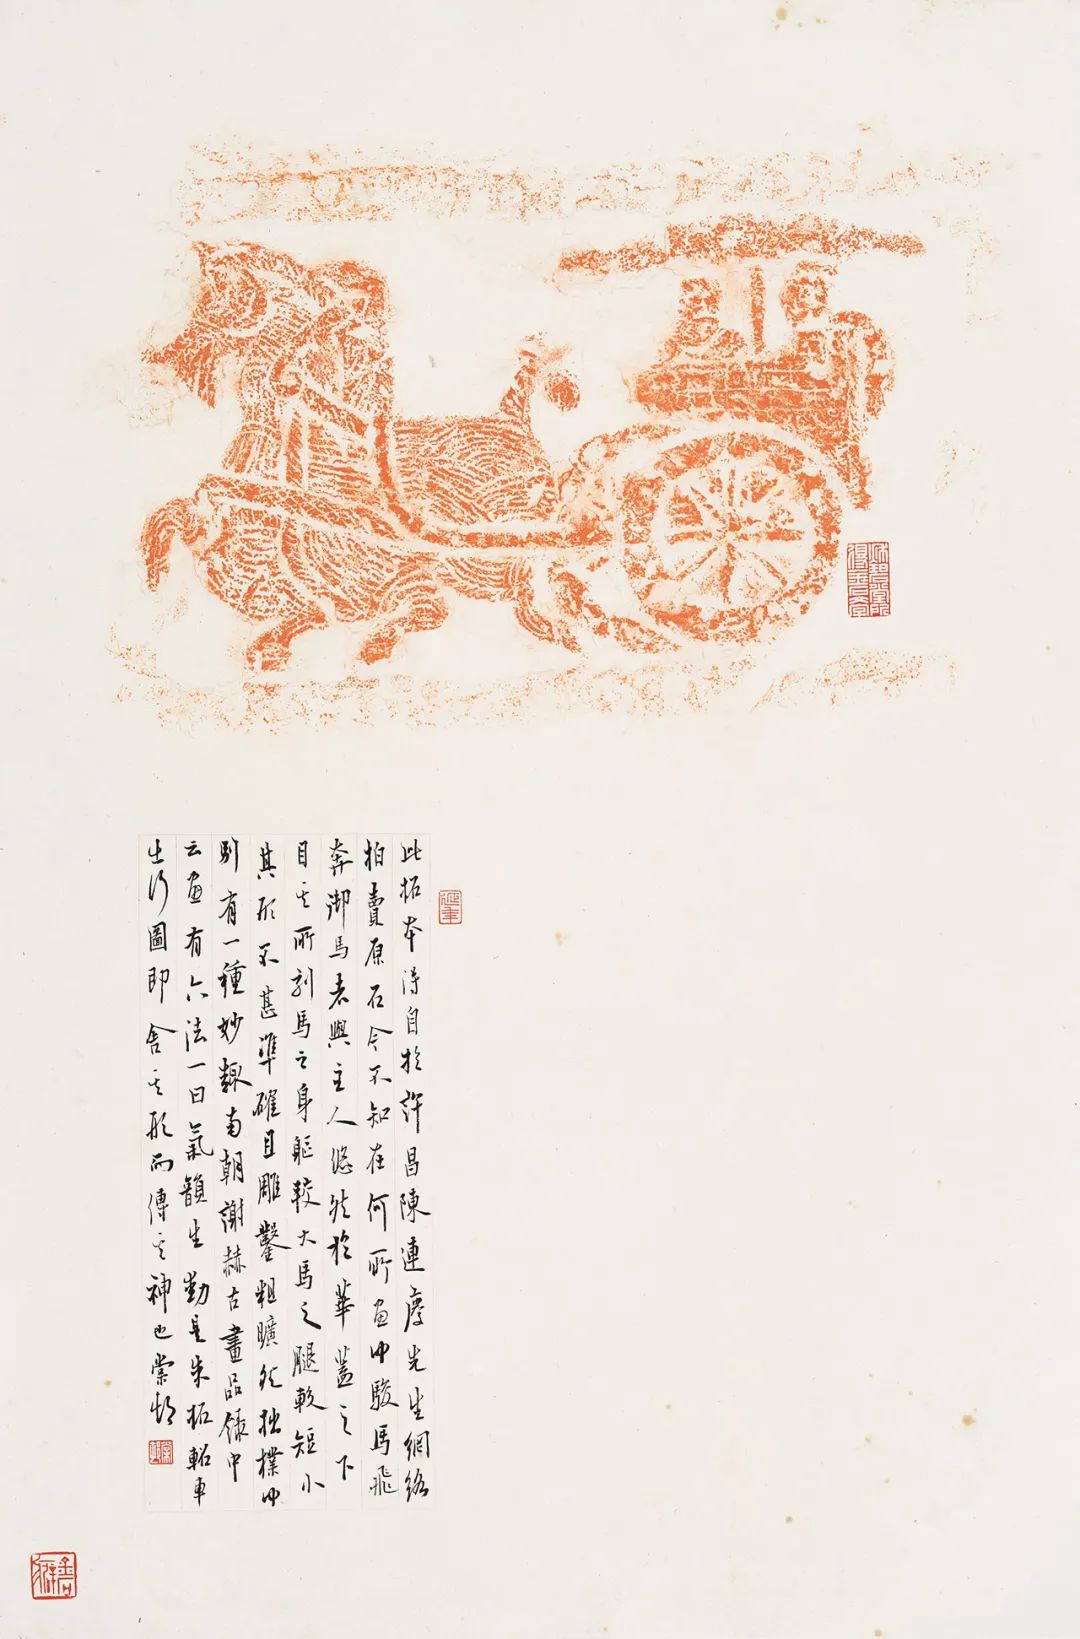 此拓本得自於許昌陳連慶先生網絡
拍賣原石今不知在何所畫中駿馬飛
奔御馬者與主人悠然於華蓋之下
目其所刻馬之身軀較大馬之腿較短小
其形不甚準確且雕鑿粗曠然拙樸中
別有一種妙趣南朝謝赫古畫品錄中
云畫有六法一曰氣韻生動是朱拓軺車
出行圖即舍其形而傳其神也棠邨